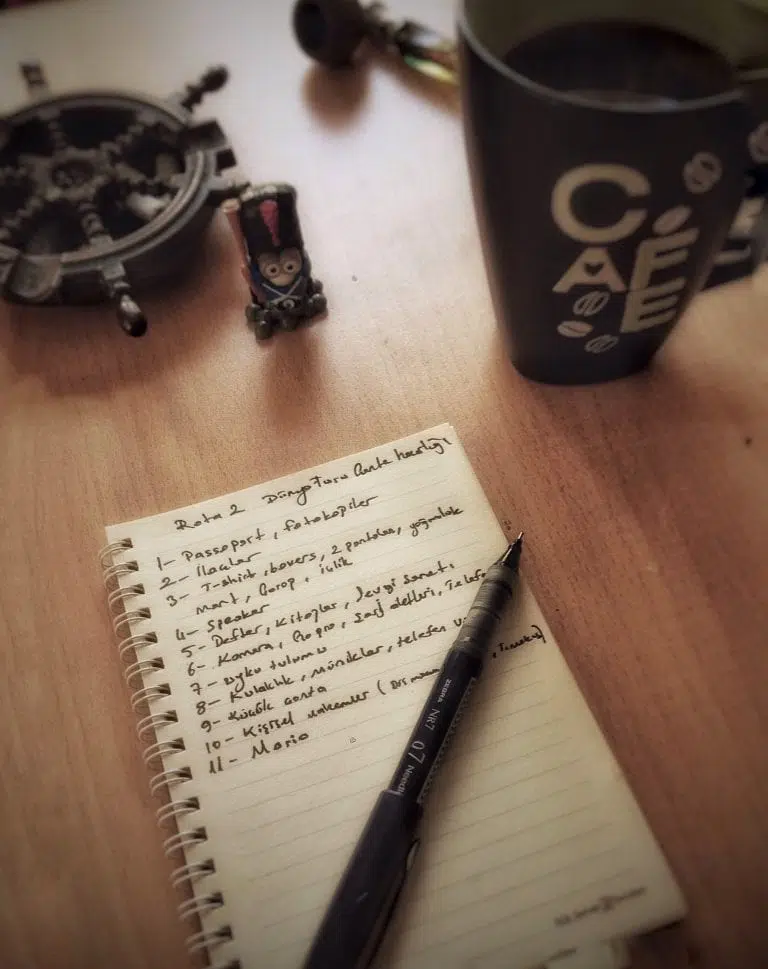 CAFE
Rota 2 Dünya Turu Çanta hazırlığı
1- Passaport, fotokopiler
2- İlaçlar
3- T-shirt, boxers, 2 pantolon, yağmurluk
mont, Çorap, içlik
4- Speaker
5- Defter, Kitaplar, Sevgi Sanatı,
6- Kamera, Go pro, şarj aletleri,
7- uyku tulumu
8- Kulaklık, müzikler, telefon
9- Küçük çanta
10- Kişisel malzemeler (
11- Mario
ZEBRA NR7 0.7 Needle